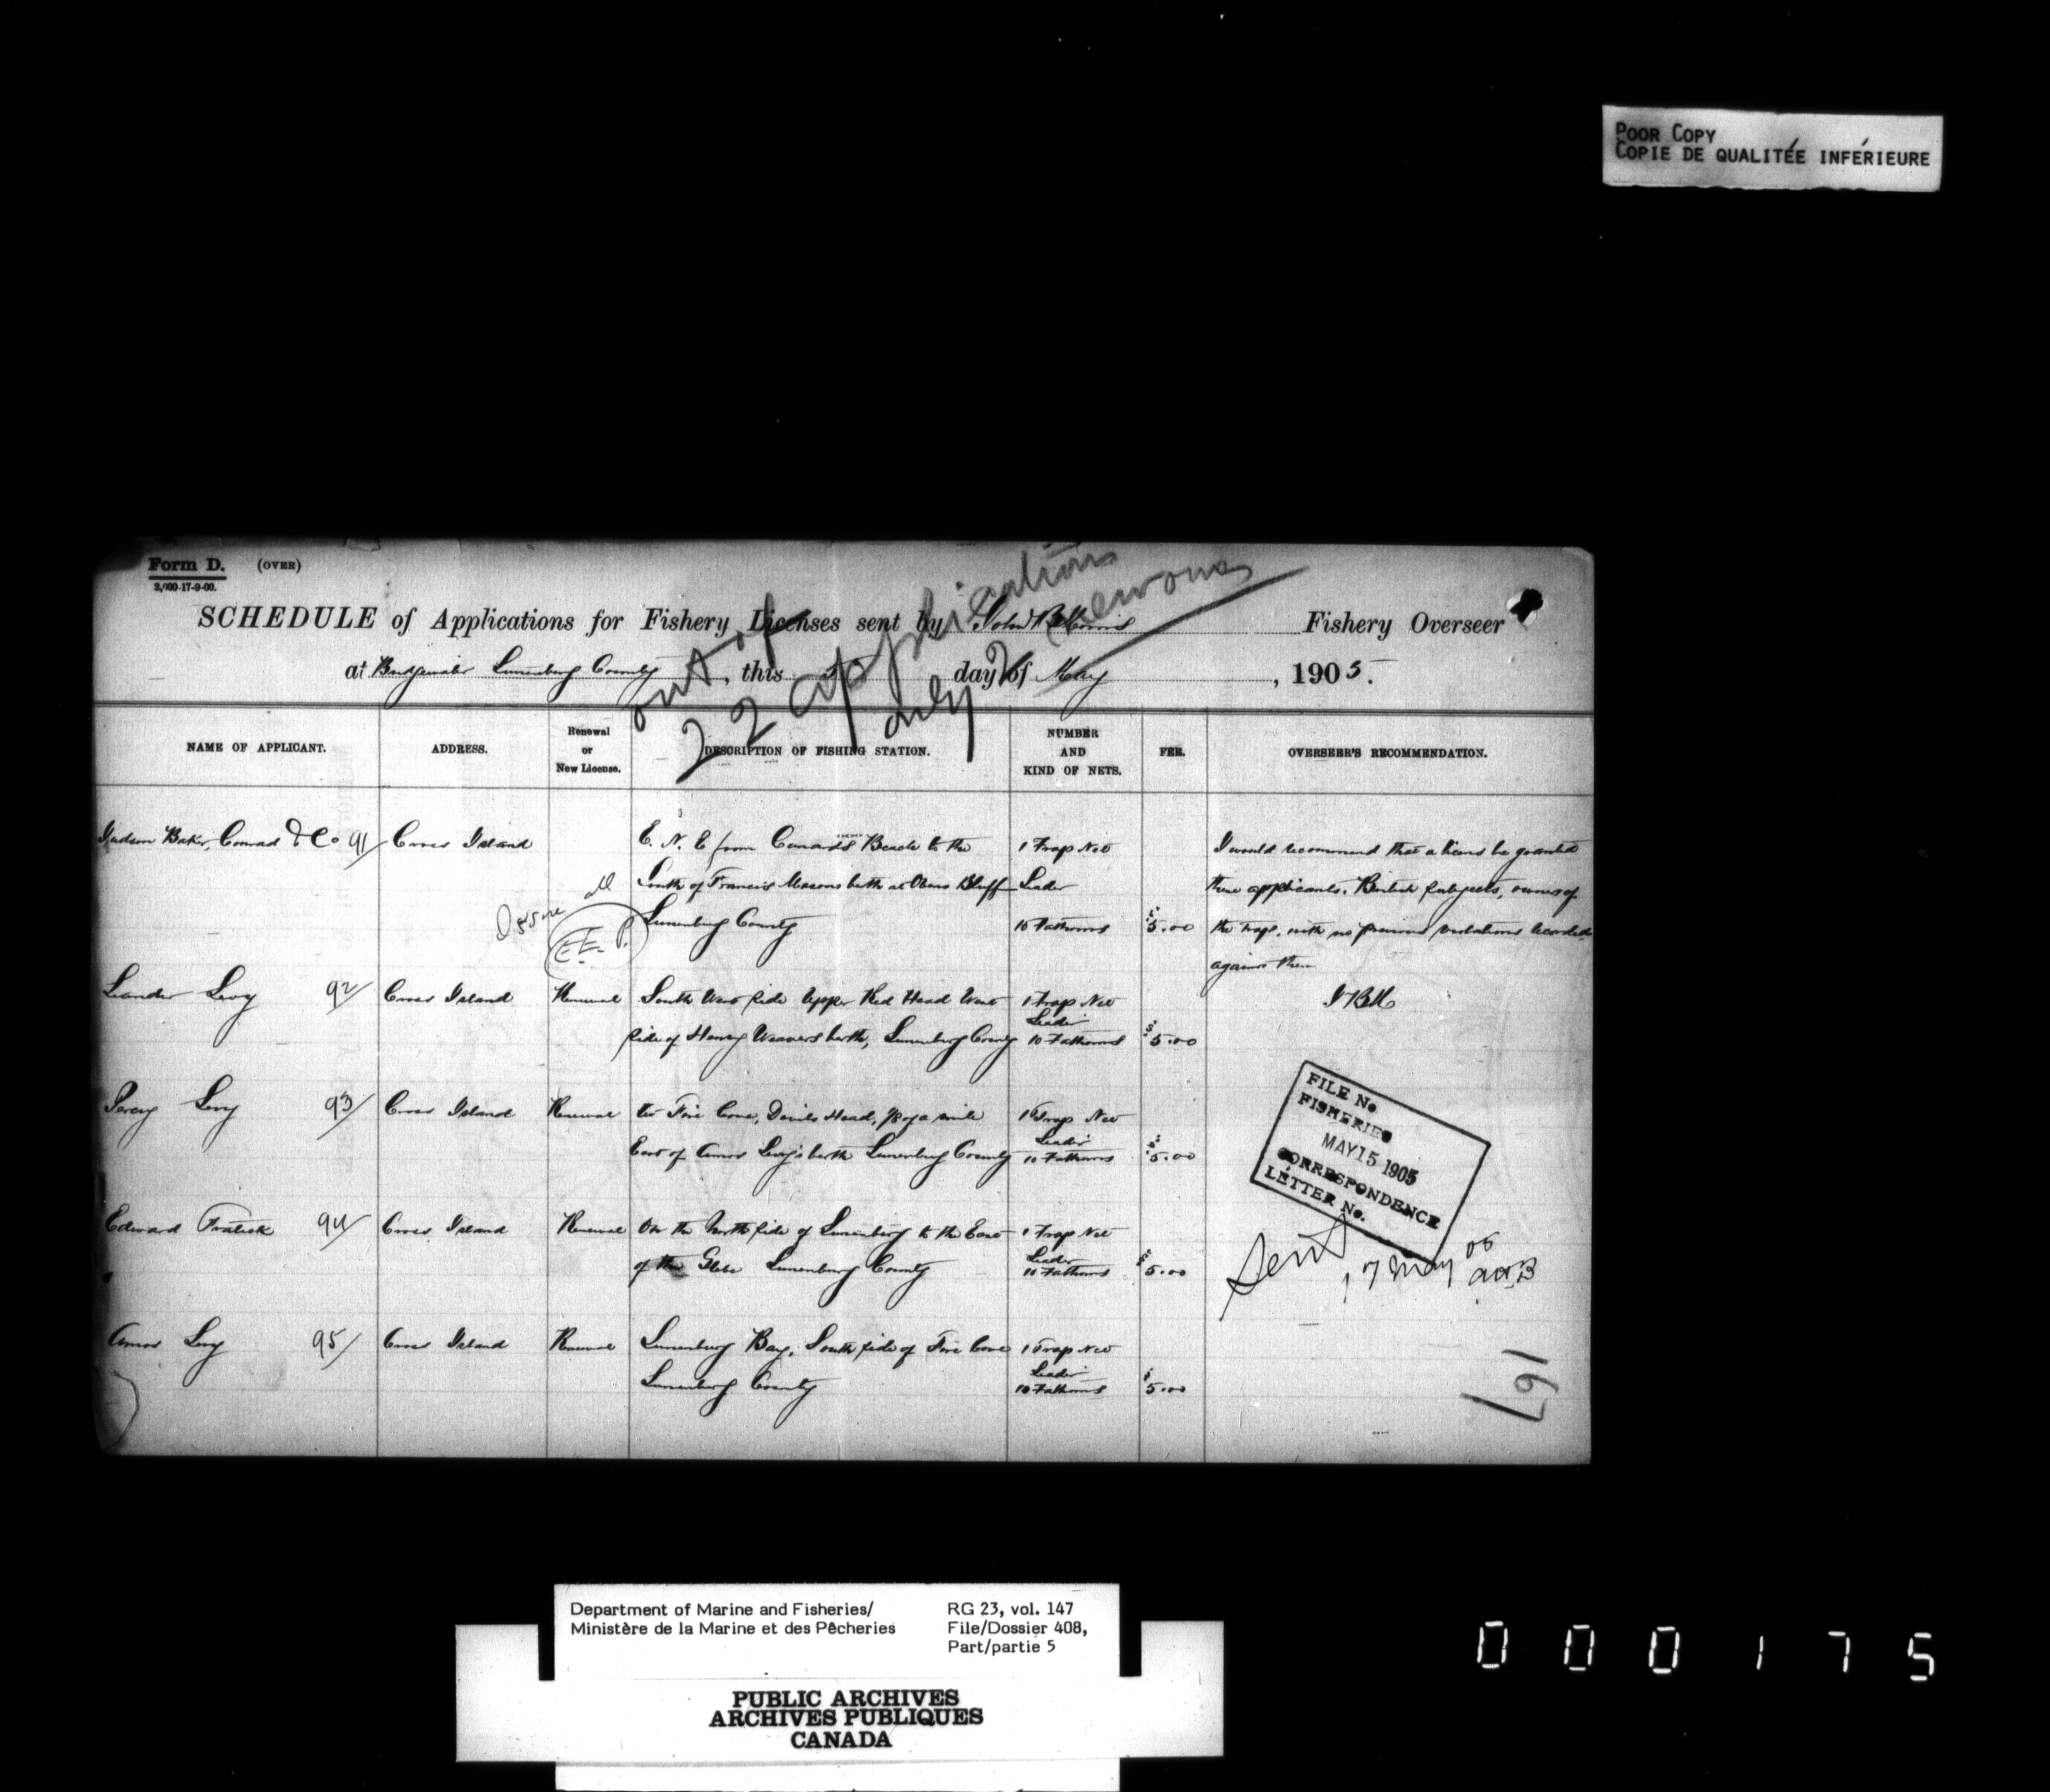 POOR COPY
COPIE DE QUALITÉE INFÉRIEURE
Form D. (OVER)
2,000-17-9-00.
SCHEDULE of Applications for Fishery Licenses sent by John B Morris Fishery Overseer
at Bridgewater Lunenburg County, this 5 day of May, 1905.
out of
22 applications
only 2 renewals
NAME OF APPLICANT. ADDRESS. Renewal or New License. DESCRIPTION OF FISHING STATION. NUMBER AND KIND OF NETS. FEE. OVERSEER'S RECOMMENDATION.
Judson Baker, Conrad & Co 91/ Cross Island E. N. E from Conards Beach to the 1 Trap Net I would recommend that a licens be granted
South of Francis Masons berth at Ovens Bluff Leader these applicants. British subjects, owners of
Issue
E.E.P. Lunenburg County 10 Fathoms $5.00 the traps, with no previous violations recorded
against them
Leander Levy 92/ Cross Island Renewal South West side Upper Red Head West 1 Trap Net J B M
Leader
side of Henry Weavers berth, Lunenburg County 10 Fathoms $5.00
Percy Levy 93/ Cross Island Renewal Devils Head, of a mile 1 Trap Net
Leader
East of Amos Levy's berth Lunenburg County 10 Fathoms $5.00
FILE No
FISHERIES
MAY 15 1905
CORRESPONDENCE
LETTER No.
Edward Fralick 94/ Cross Island Renewal On the North side of Lunenburg to the East 1 Trap Net
Leader
of the Lunenburg County 10 Fathoms $5.00
Sent 17 May 05
Amos Levy 95/ Cross Island Renewal Lunenburg Bay, South side of Cove 1 Trap Net
Leader
Lunenburg County 10 Fathoms $5.00
167
Department of Marine and Fisheries/ RG 23, vol. 147
Ministère de la Marine et des Pêcheries File/Dossier 408,
Part/partie 5
PUBLIC ARCHIVES
ARCHIVES PUBLIQUES
CANADA
000175